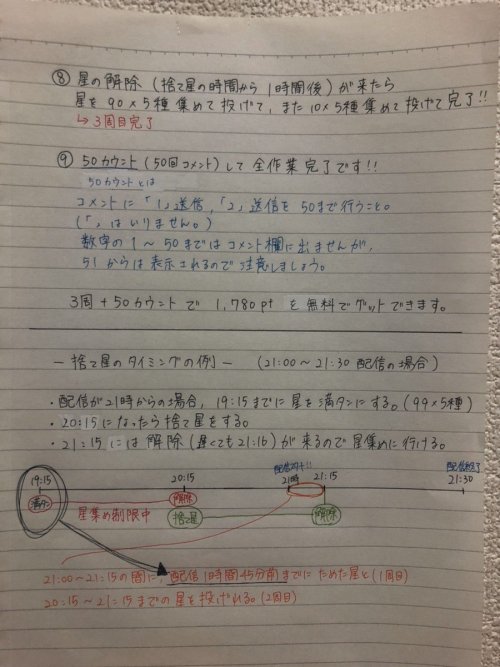 ⑧ 星の解除 (捨て星の時間から1時間後) が来たら
星を 90×5種 集めて投げて, また10×5種集めて投げて完了!!
↳ 3周目完了
⑨ 50カウント (50回コメント) して 全作業完了です!!
50カウントとは
コメントに「1」送信,「2」送信を 50まで行うこと。
(「」はいりません。)
数字の 1〜50まではコメント欄に出ませんが,
51からは表示されるので注意しましょう。
3周+50カウントで 1,780pt を無料でゲットできます。
− 捨て星のタイミングの例 − (21:00〜21:30 配信の場合)
・配信が21時からの場合, 19:15までに星を満タンにする。(99×5種)
・20:15になったら捨て星をする。
・21:15には解除 (遅くても21:16) が来るので星集めに行ける。
19:15 20:15 配信スタート!! 21時 21:15 配信終了 21:30
満タン 星集め制限中 解除
捨て星 解除
21:00〜21:15の間に, 配信1時間45分前までにためた星と(1周目)
20:15〜21:15までの星を投げれる。(2周目)